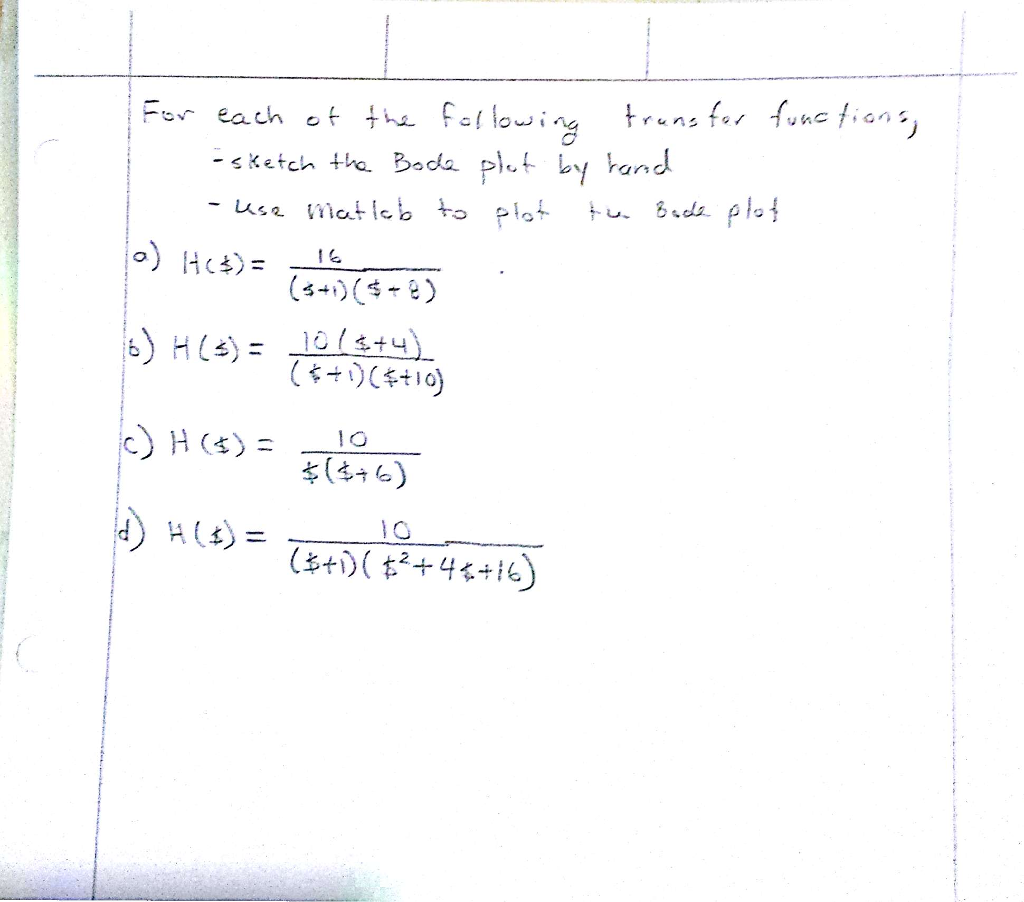 For each of the following transfer functions,
- sketch the Bode plot by hand
- use matlab to plot the Bode plot
a) H($) = 16 / (($+1)($+8))
b) H($) = 10($+4) / (($+1)($+10))
c) H($) = 10 / ($($+6))
d) H($) = 10 / (($+1)($²+4$+16))